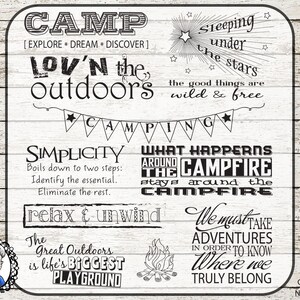 CAMP
[ EXPLORE • DREAM • DISCOVER ]
Sleeping
under
the stars
LOV'N the
outdoors
the good things are
wild & free
CAMPING
SIMPLICITY
Boils down to two steps:
Identify the essential.
Eliminate the rest.
WHAT HAPPENS
AROUND THE CAMPFIRE
stays around the
CAMPFIRE
relax & unwind
The
Great Outdoors
is life's BIGGEST
PLAYGROUND
We must TAKE
ADVENTURES
IN ORDER TO KNOW
Where we
TRULY BELONG